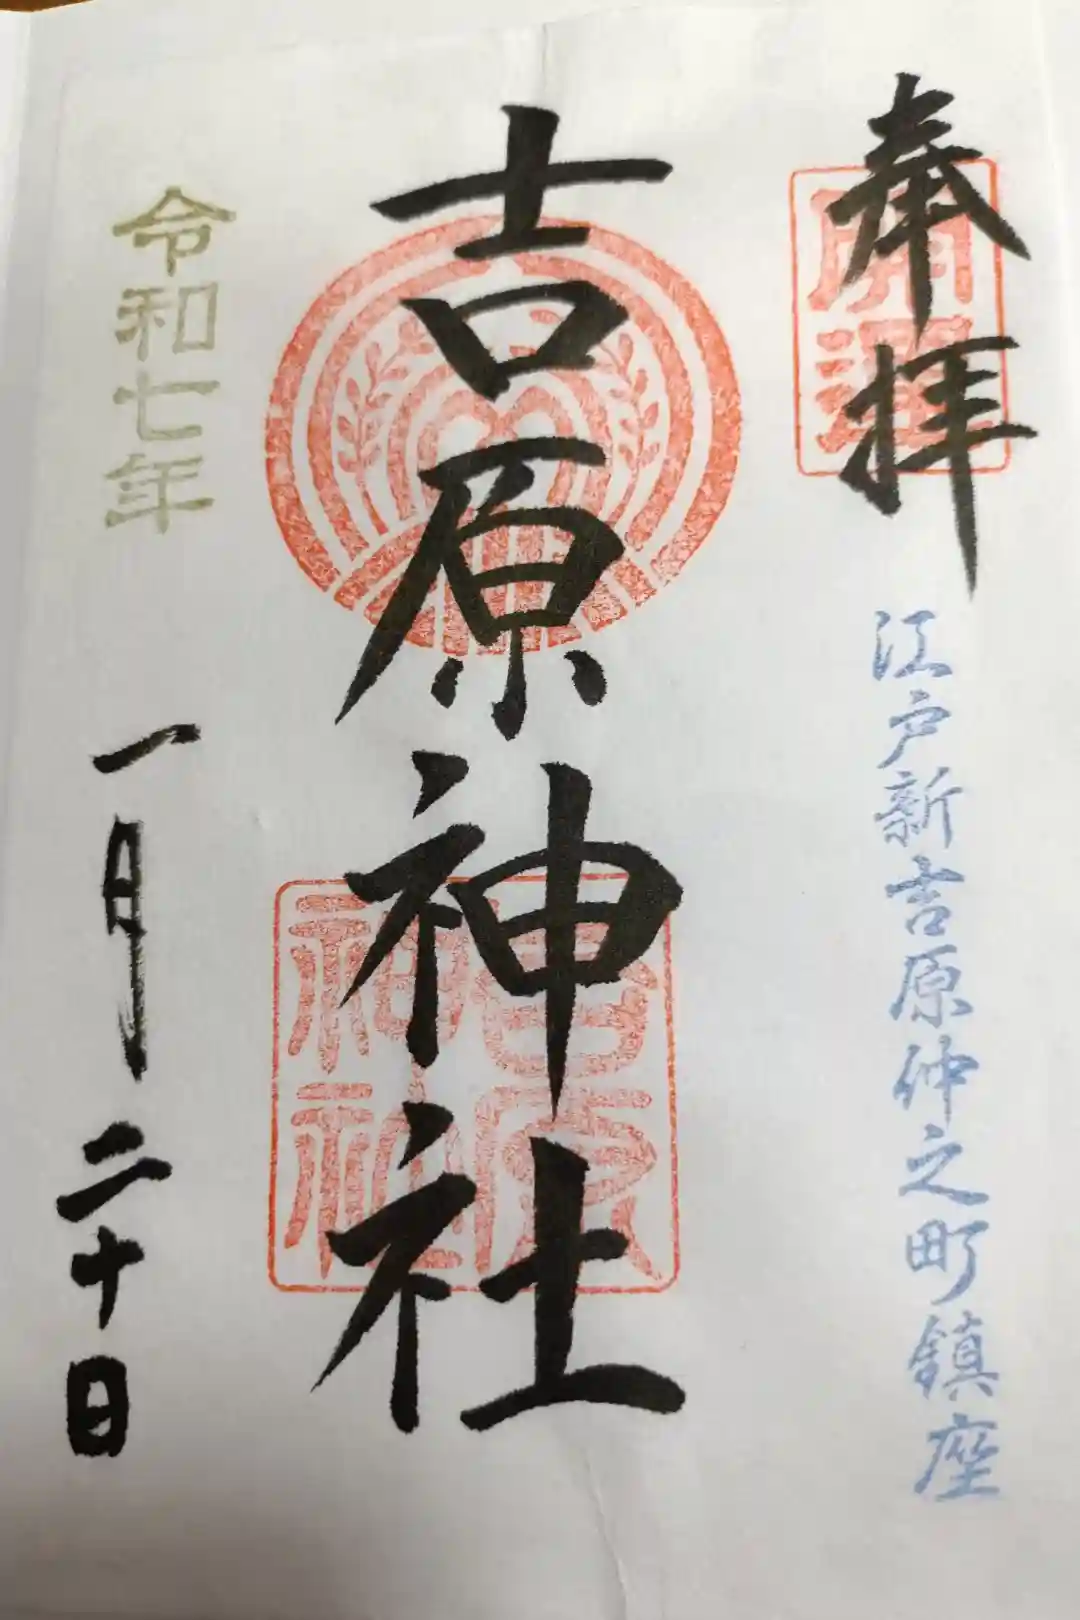 奉拝
開運
江戸新吉原仲之町鎮座
吉原神社
吉原
神社
令和七年
一月二十日